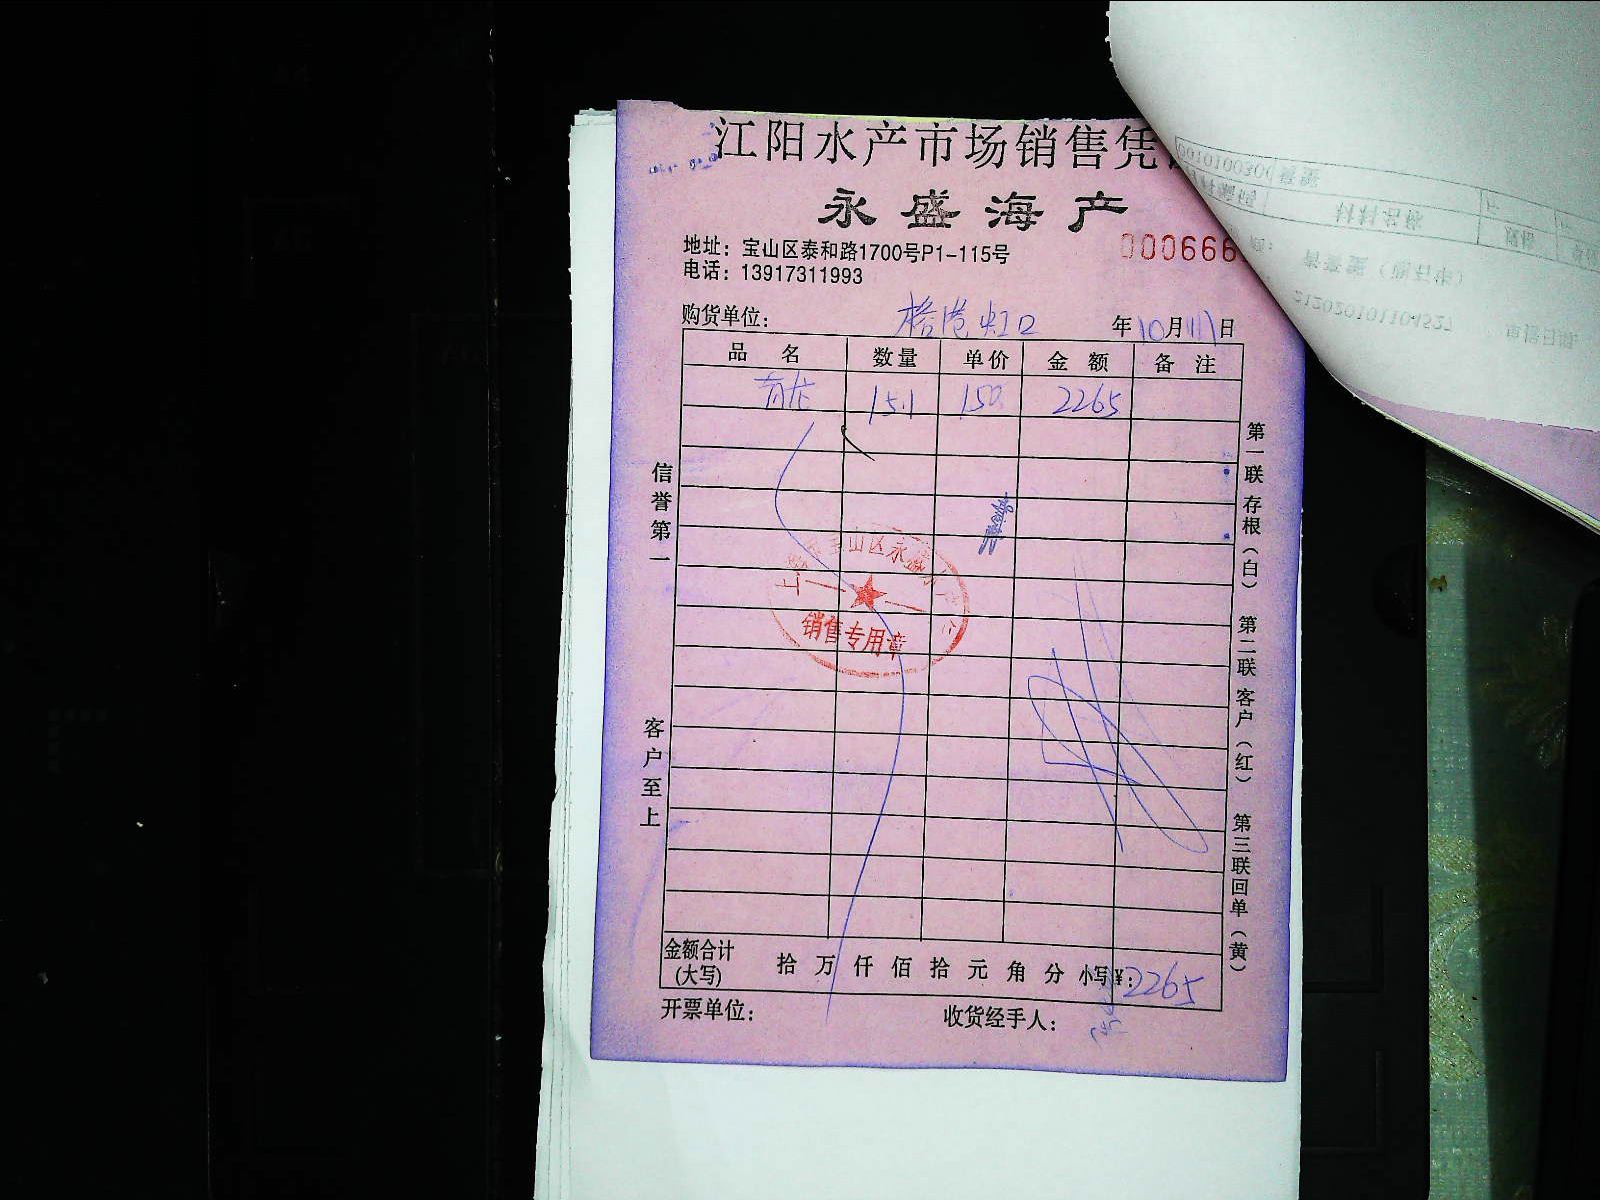 江阳水产市场销售凭
永盛海产
地址：宝山区泰和路1700号P1-115号
000666
电话：13917311993
购货单位： 虹口 年10月11日
品 名 数量 单价 金 额 备 注
青龙 15.1 150 2265
信誉第一
客户至上
第一联 存根（白） 第二联 客户（红） 第三联 回单（黄）
宝山区永盛
销售专用章
金额合计(大写) 拾 万 仟 佰 拾 元 角 分 小写¥：2265
开票单位： 收货经手人：